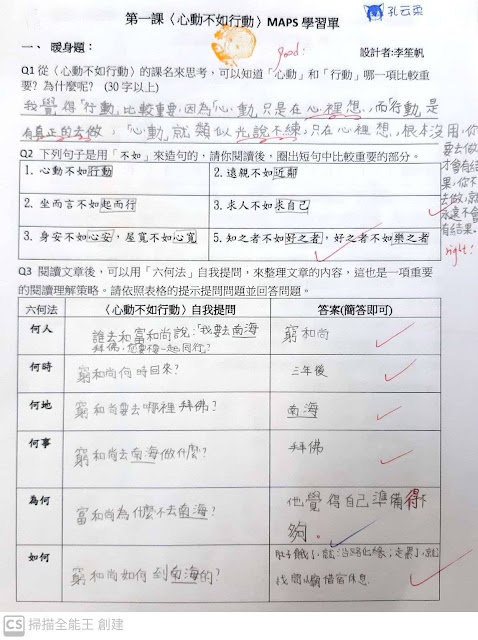 第一課〈心動不如行動〉MAPS 學習單
孔云柔
good!
一、 暖身題：
設計者:李笙帆
Q1 從〈心動不如行動〉的課名來思考，可以知道「心動」和「行動」哪一項比較重
要? 為什麼呢? (30 字以上)
我覺得「行動」比較重要，因為「心動」只是在心裡想，而「行動」是
有真正的去做，「心動」就類似光說不練，只在心裡想，根本沒用，你
要去做
才會有結
果，你不
去做，就
永遠不會
有結果。
right!
Q2 下列句子是用「不如」來造句的，請你閱讀後，圈出短句中比較重要的部分。
1. 心動不如行動
2. 遠親不如近鄰
2. 坐而言不如起而行
3. 求人不如求自己
3. 身安不如心安，屋寬不如心寬
5. 知之者不如好之者，好之者不如樂之者
Q3 閱讀文章後，可以用「六何法」自我提問，來整理文章的內容，這也是一項重要
的閱讀理解策略。請依照表格的提示提問問題並回答問題。
六何法
〈心動不如行動〉自我提問
答案(簡答即可)
何人
誰去和富和尚說：「我要去南海
拜佛，您要不要一起同行?」
窮和尚
何時
窮和尚何時回來?
三年後
何地
窮和尚要去哪裡拜佛?
南海
何事
窮和尚去南海做什麼?
拜佛
為何
富和尚為什麼不去南海?
他覺得自己準備得不
夠。
如何
窮和尚如何到南海的?
肚子餓了，就沿路化緣；走累了，就
找間小廟借宿休息.
CS 掃描全能王 創建